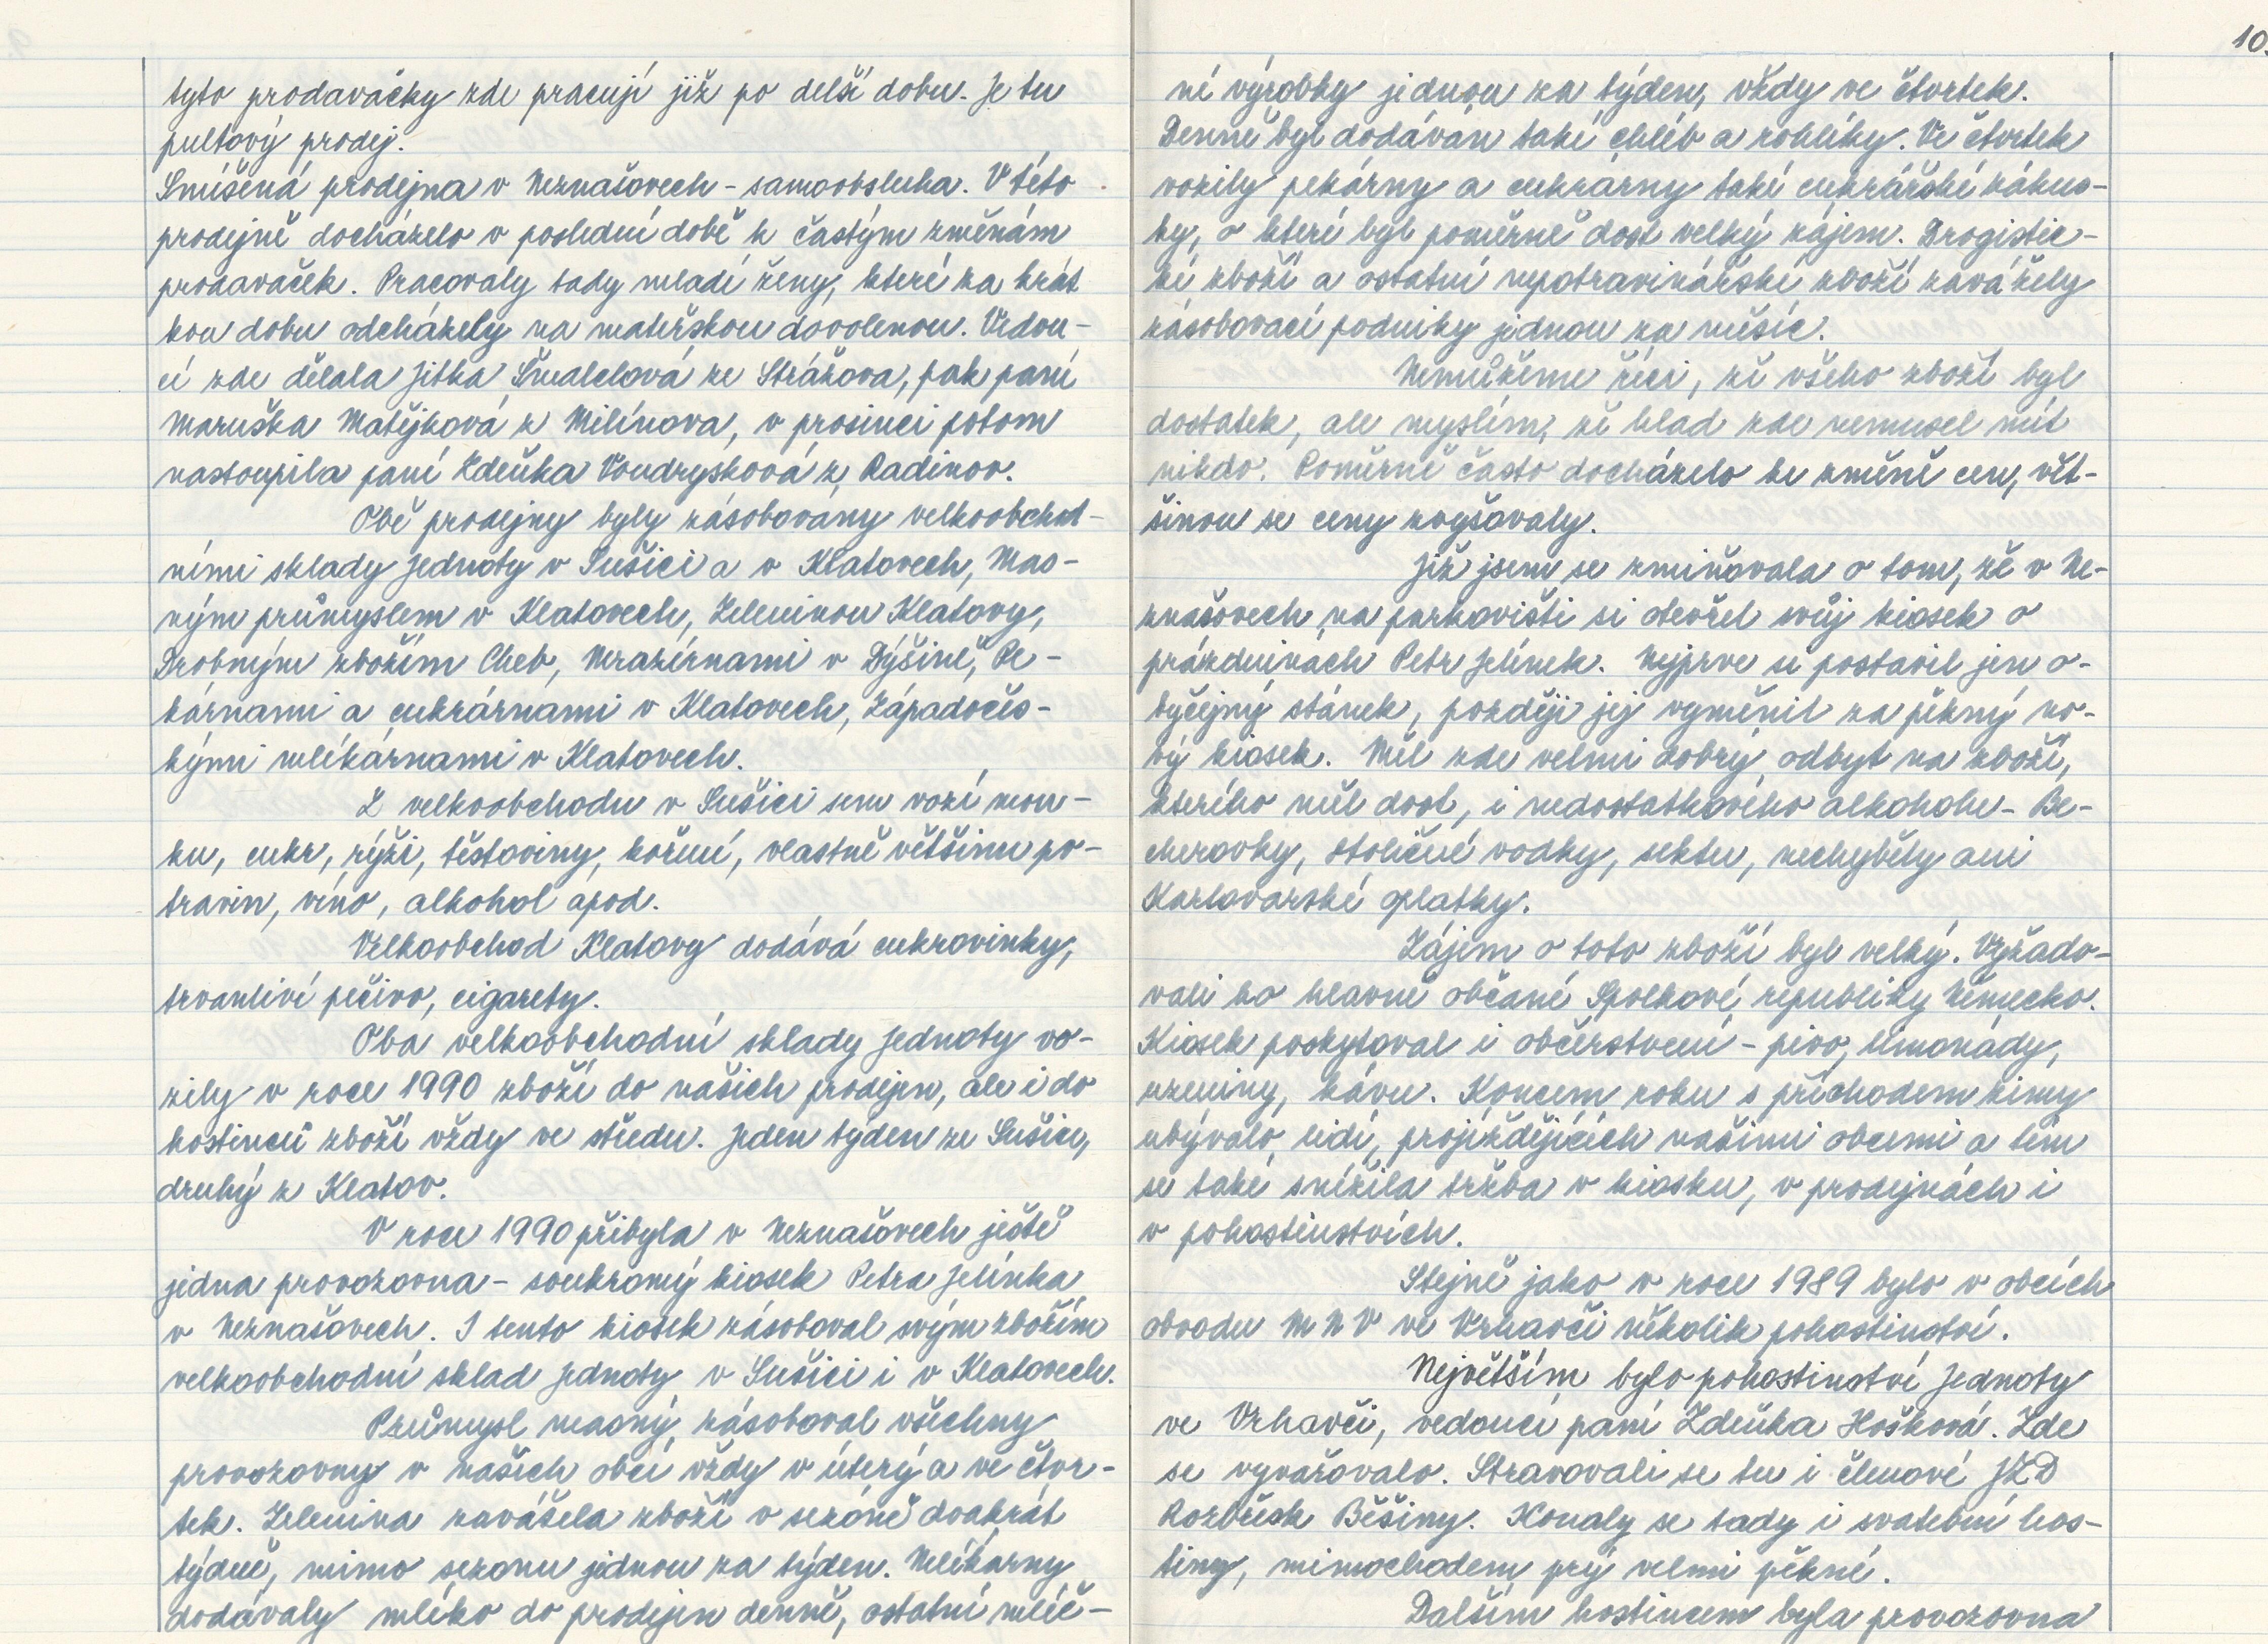 tyto prodavačky zde pracují již po delší dobu. Je tu
pultový prodej.
Smíšená prodejna v Neznašovech - samoobsluha. V této
prodejně docházelo v poslední době k častým změnám
prodavaček. Pracovaly tady mladé ženy, které za krát
kou dobu odcházely na mateřskou dovolenou. Vedou-
cí zde dělala Jitka ze Strážova, pak paní
Maruška Matějková z Milínova, v prosinci potom
nastoupila paní Zdeňka Voudrysková z Radinov.
Obě prodejny byly zásobovány velkoobchod-
ními sklady Jednoty v Sušici a v Klatovech, Mas-
ným průmyslem v Klatovech, Zeleninou Klatovy,
Drobným zbožím Cheb, Mrazírnami v Dýšině, Pe-
kárnami a cukrárnami v Klatovech, Západočes-
kými mlékárnami v Klatovech.
Z velkoobchodu v Sušici sem vozí mou-
ku, cukr, rýži, těstoviny, koření, vlastně většinu po-
travin, víno, alkohol apod.
Velkoobchod Klatovy dodává cukrovinky,
trvanlivé pečivo, cigarety.
Oba velkoobchodní sklady Jednoty vo-
zily v roce 1990 zboží do našich prodejen, ale i do
hostinců zboží vždy ve středu. Jeden týden ze Sušice,
druhý z Klatov.
V roce 1990 přibyla v Neznašovech ještě
jedna provozovna - soukromý kiosek Petra Jelínka
v Neznašovech. I tento kiosek zásoboval svým zbožím
velkoobchodní sklad Jednoty v Sušici i v Klatovech.
Průmysl masný zásoboval všechny
provozovny v našich obcí vždy v úterý a ve čtvr-
tek. Zelenina zavážela zboží v sezóně dvakrát
týdně, mimo sezonu jednou za týden. Mlékárny
dodávaly mléko do prodejen denně, ostatní mléč-
10.
né výrobky jednou za týden, vždy ve čtvrtek.
Denně byl dodáván také chléb a rohlíky. Ve čtvrtek
vozily pekárny a cukrárny také cukrářské zákus-
ky, o které byl poměrně dost velký zájem. Drogistic-
ké zboží a ostatní nepotravinářské zboží zavážely
zásobovací podniky jednou za měsíc.
Nemůžeme říci, že všeho zboží byl
dostatek, ale myslím, že hlad zde nemusel mít
nikdo. Poměrně často docházelo ke změně cen, vět-
šinou se ceny zvyšovaly.
Již jsem se zmiňovala o tom, že v Ne-
znašovech na parkovišti si otevřel svůj kiosek o
prázdninách Petr Jelínek. Nejprve si postavil jen o-
byčejný stánek, později jej vyměnil za pěkný no-
vý kiosek. Měl zde velmi dobrý odbyt na zboží,
kterého měl dost, i nedostatkového alkoholu - Be-
cherovky, stoličné vodky, sektu, nechyběly ani
Karlovarské oplatky.
Zájem o toto zboží byl velký. Vyžado-
vali ho hlavně občané Spolkové republiky Německo.
Kiosek poskytoval i občerstvení - pivo, limonády,
uzeniny, kávu. Koncem roku s příchodem zimy
ubývalo lidí, projíždějících našimi obcemi a tím
se také snížila tržba v kiosku, v prodejnách i
v pohostinstvích.
Stejně jako v roce 1989 bylo v obcích
obvodu MNV ve Vrhavči několik pohostinství.
Největším bylo pohostinství Jednoty
ve Vrhavči, vedoucí paní Zdeňka Hošková. Zde
se vyvařovalo. Stravovali se tu i členové JZD
Rozbřesk Běšiny. Konaly se tady i svatební hos-
tiny, mimochodem prý velmi pěkné.
Dalším hostincem byla provozovna